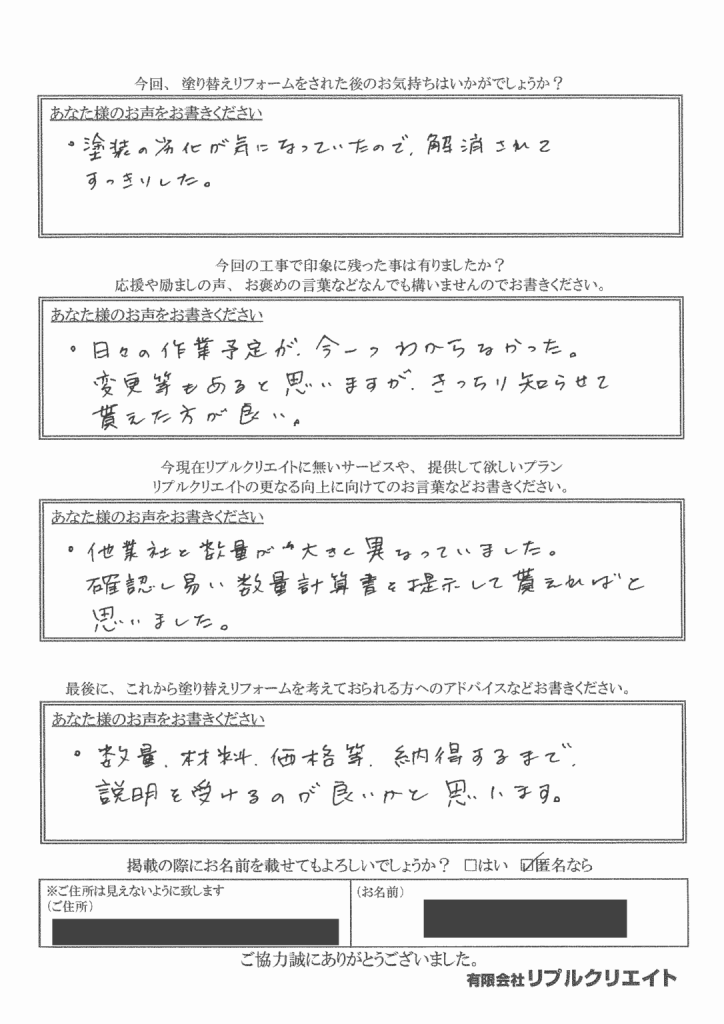 今回、塗り替えリフォームをされた後のお気持ちはいかがでしょうか？
あなた様のお声をお書きください
・塗装の劣化が気になっていたので、解消されて
すっきりした。
今回の工事で印象に残った事は有りましたか？
応援や励ましの声、お褒めの言葉などなんでも構いませんのでお書きください。
あなた様のお声をお書きください
・日々の作業予定が、今一つわからなかった。
変更等もあると思いますが、きっちり知らせて
貰えた方が良い。
今現在リプルクリエイトに無いサービスや、提供して欲しいプラン
リプルクリエイトの更なる向上に向けてのお言葉などお書きください。
あなた様のお声をお書きください
・他業社と数量が大きく異なっていました。
確認し易い数量計算書を提示して貰えればと
思いました。
最後に、これから塗り替えリフォームを考えておられる方へのアドバイスなどお書きください。
あなた様のお声をお書きください
・数量、材料、価格等、納得するまで、
説明を受けるのが良いかと思います。
掲載の際にお名前を載せてもよろしいでしょうか？ □はい ☑匿名なら
※ご住所は見えないように致します
（ご住所）
（お名前）
ご協力誠にありがとうございました。
有限会社リプルクリエイト